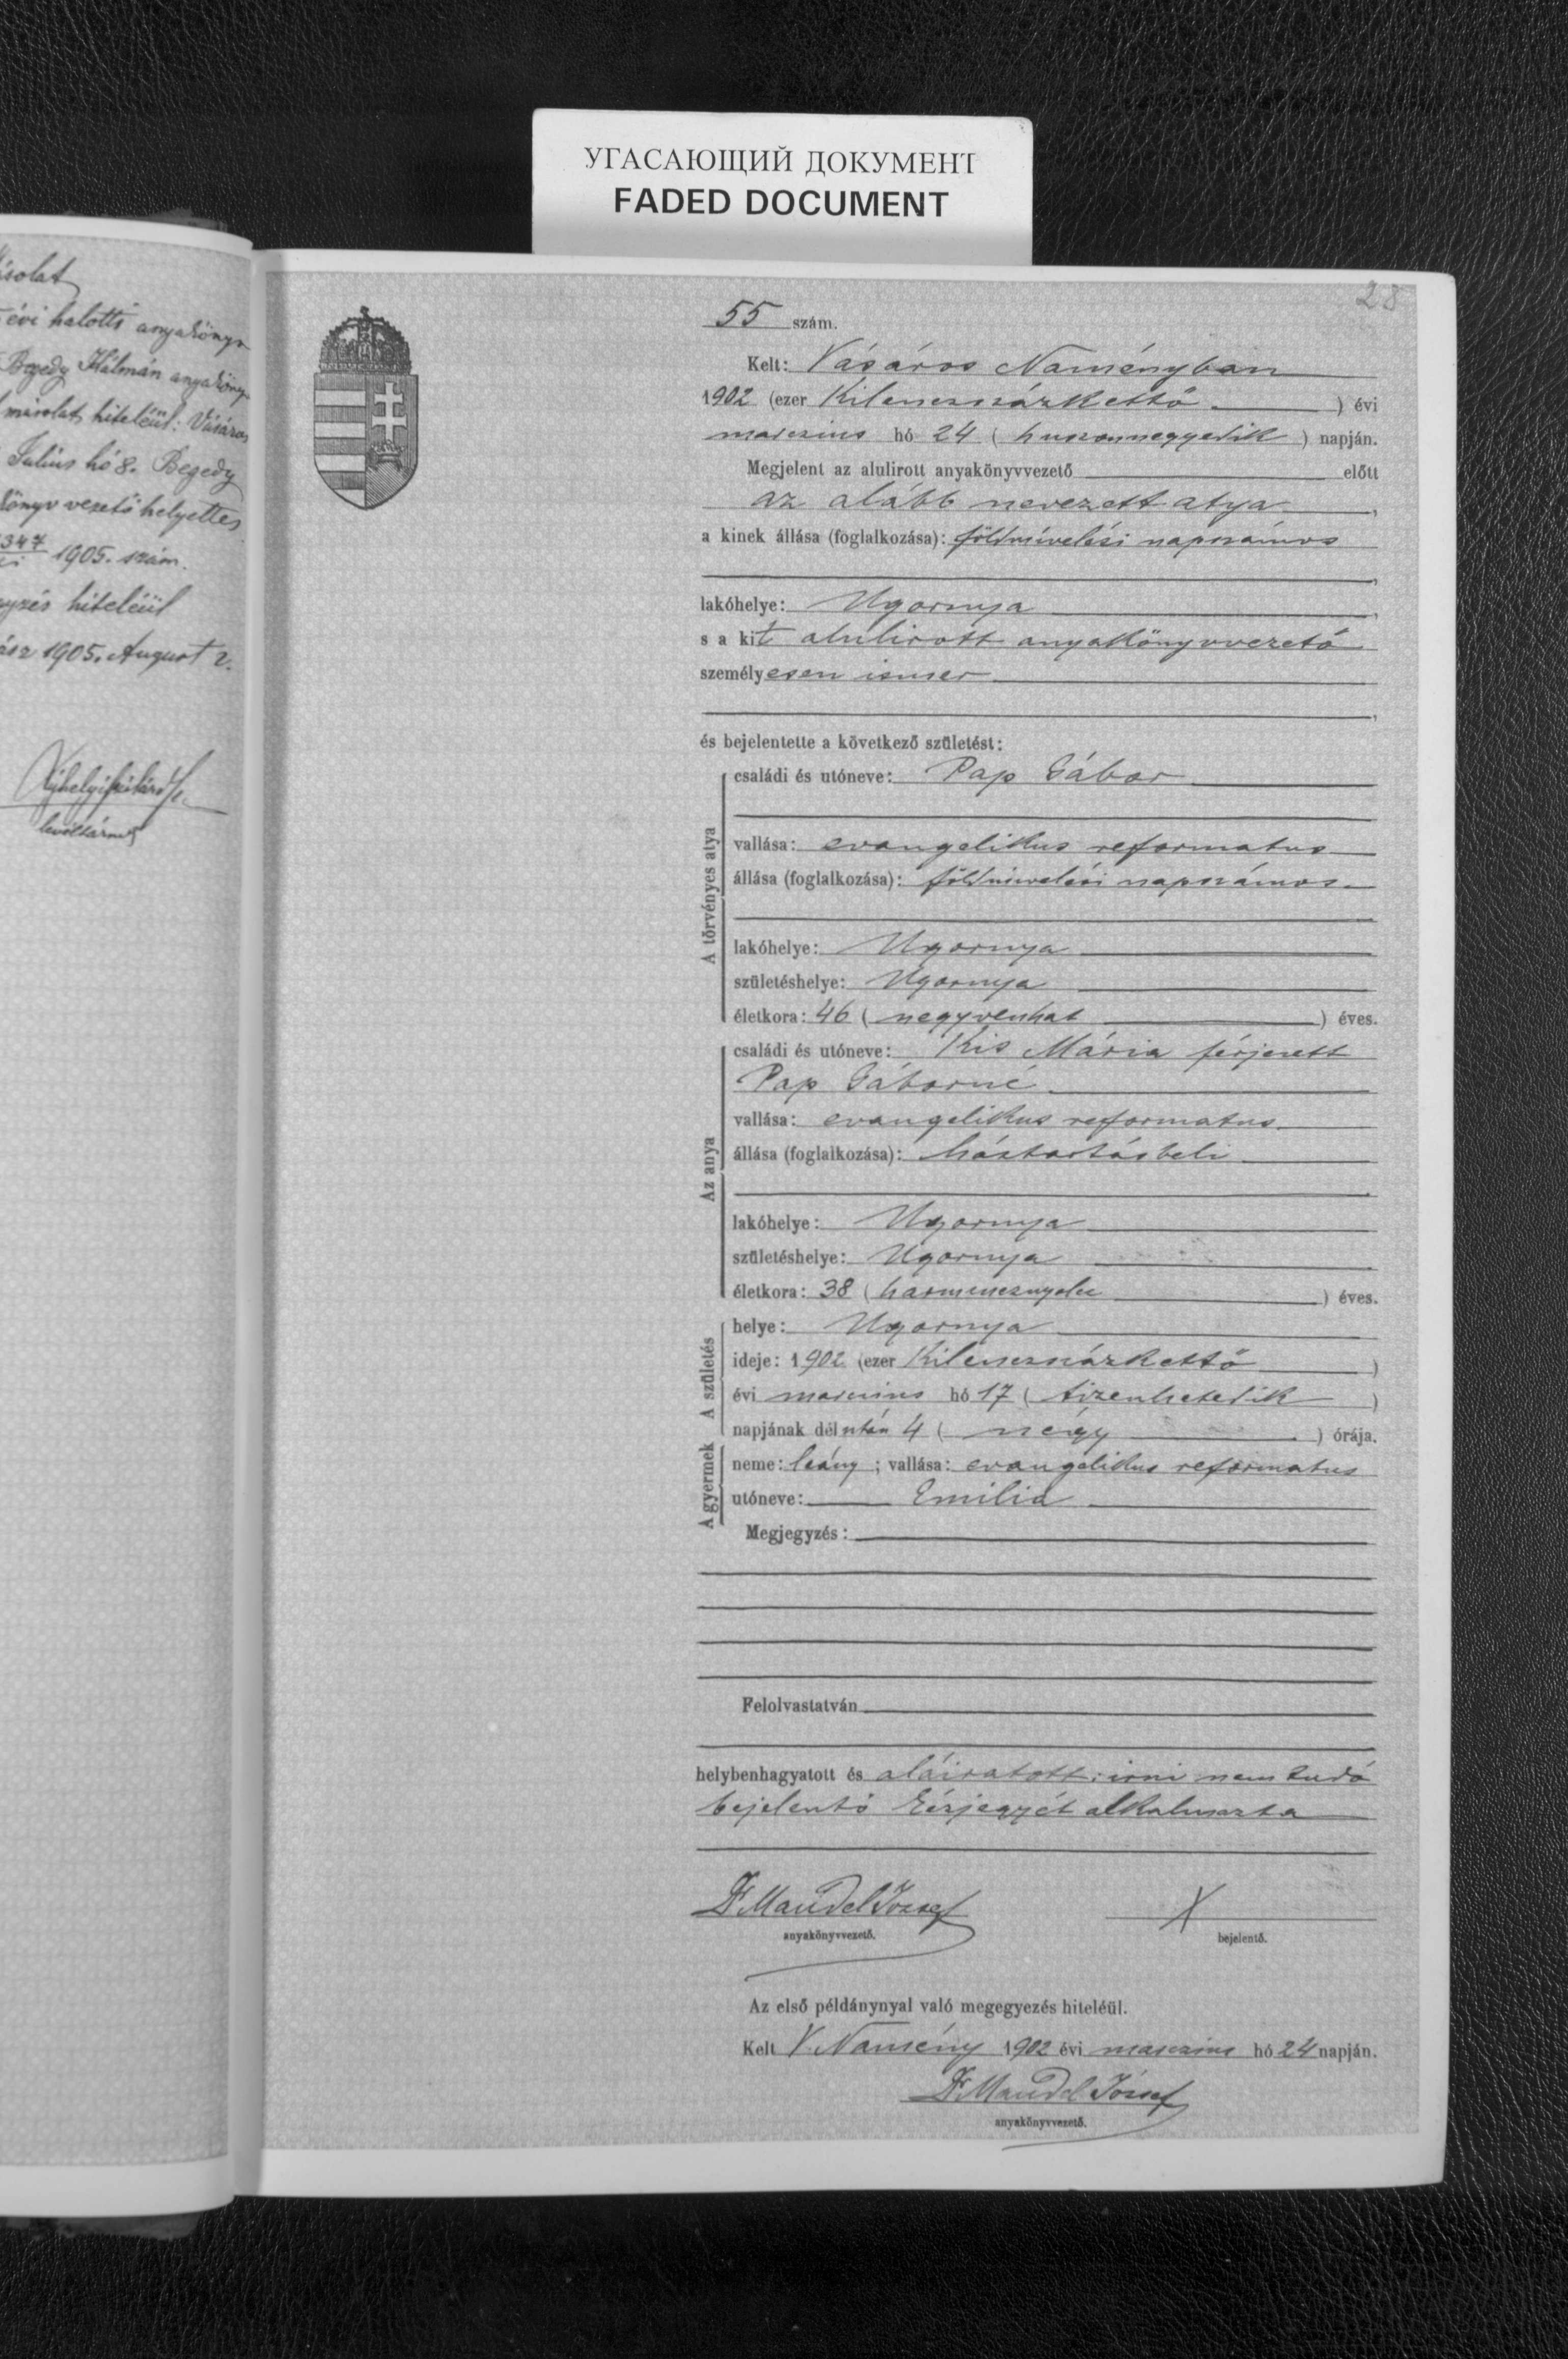 УГАСАЮЩИЙ ДОКУМЕНТ
FADED DOCUMENT
évi halotti anyakönyv
Begedy Kálmán anyaköny
másolat hiteléül: Vásáros
Julius hó 8. Begedy
könyvvezető helyettes
347
1905. szám.
hiteléül
1905. August 2.
levéltárnok
28
55 szám.
Kelt: Vásáros Naményban
1902 (ezer kilenczszázkettő ) évi
márczius hó 24 ( huszonnegyedik ) napján.
Megjelent az alulirott anyakönyvvezető előtt
az alább nevezett atya ,
a kinek állása (foglalkozása): földmívelési napszámos
,
lakóhelye: Ugornya ,
s a kit alulirott anyakönyvvezető
személyesen ismer
,
és bejelentette a következő születést:
A törvényes atya
családi és utóneve: Pap Gábor
vallása: evangelikus reformatus
állása (foglalkozása): földmívelési napszámos
lakóhelye: Ugornya
születéshelye: Ugornya
életkora: 46 ( negyvenhat ) éves.
Az anya
családi és utóneve: Kis Mária férjezett
Pap Gáborné
vallása: evangelikus reformatus
állása (foglalkozása): háztartásbeli
lakóhelye: Ugornya
születéshelye: Ugornya
életkora: 38 ( harmincznyolcz ) éves.
A születés
helye: Ugornya
ideje: 1902 (ezer kilenczszázkettő )
évi márczius hó 17 ( tizenhetedik )
napjának délután 4 ( négy ) órája.
A gyermek
neme: leány ; vallása: evangelikus reformatus
utóneve: Emilia
Megjegyzés:
Felolvastatván
helybenhagyatott és aláiratott; irni nem tudó
bejelentő kézjegyét alkalmazta
Dr Mandel József X
anyakönyvvezető. bejelentő.
Az első példánynyal való megegyezés hiteléül.
Kelt V. Namény 1902 évi márczius hó 24 napján.
Dr Mandel József
anyakönyvvezető.